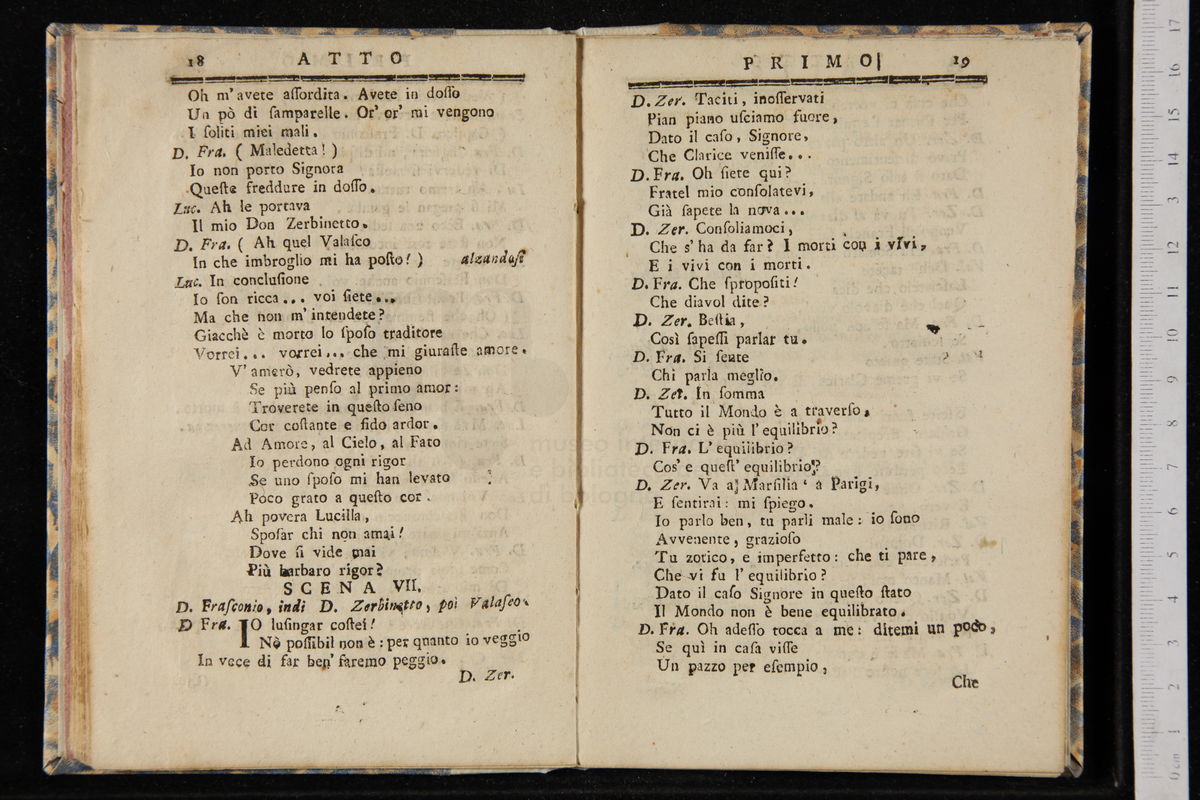 18 ATTO
Oh m'avete aſſordita. Avete in doſſo
Un pò di ſamparelle. Or' or' mi vengono
I ſoliti miei mali.
D. Fra. ( Maledetta! )
Io non porto Signora
Queſte freddure in doſſo.
Luc. Ah le portava
Il mio Don Zerbinetto.
D. Fra. ( Ah quel Valaſco
In che imbroglio mi ha poſto! ) alzandoſi
Luc. In concluſione
Io ſon ricca... voi ſiete...
Ma che non m'intendete?
Giacchè è morto lo ſpoſo traditore
Vorrei... vorrei... che mi giuraſte amore.
V'amerò, vedrete appieno
Se più penſo al primo amor:
Troverete in queſto ſeno
Cor coſtante e fido ardor.
Ad Amore, al Cielo, al Fato
Io perdono ogni rigor
Se uno ſpoſo mi han levato
Poco grato a queſto cor.
Ah povera Lucilla,
Spoſàr chi non amai!
Dove ſi vide mai
Più barbaro rigor?
SCENA VII.
D. Fraſconio, indi D. Zerbinetto, poi Valaſco.
D Fra. IO luſingar coſtei!
Nò poſſibil non è: per quanto io veggio
In vece di far ben' faremo peggio.
D. Zer.
PRIMO 19
D. Zer. Taciti, inoſſervati
Pian piano uſciamo fuore,
Dato il caſo, Signore,
Che Clarice veniſſe...
D. Fra. Oh ſiete qui?
Fratel mio conſolatevi,
Già ſapete la nova...
D. Zer. Conſoliamoci,
Che s'ha da far? I morti con i vivi,
E i vivi con i morti.
D. Fra. Che ſpropoſiti!
Che diavol dite?
D. Zer. Beſtia,
Così ſapeſſi parlar tu.
D. Fra. Si ſente
Chi parla meglio.
D. Zer. In ſomma
Tutto il Mondo è a traverſo,
Non ci è più l'equilibrio?
D. Fra. L'equilibrio?
Cos' e queſt' equilibrio?
D. Zer. Va a Marſilia' a Parigi,
E ſentirai: mi ſpiego.
Io parlo ben, tu parli male: io ſono
Avvenente, grazioſo
Tu zotico, e imperfetto: che ti pare,
Che vi fu l'equilibrio?
Dato il caſo Signore in queſto ſtato
Il Mondo non è bene equilibrato.
D. Fra. Oh adeſſo tocca a me: ditemi un poco,
Se quì in caſa viſſe
Un pazzo per eſempio,
Che